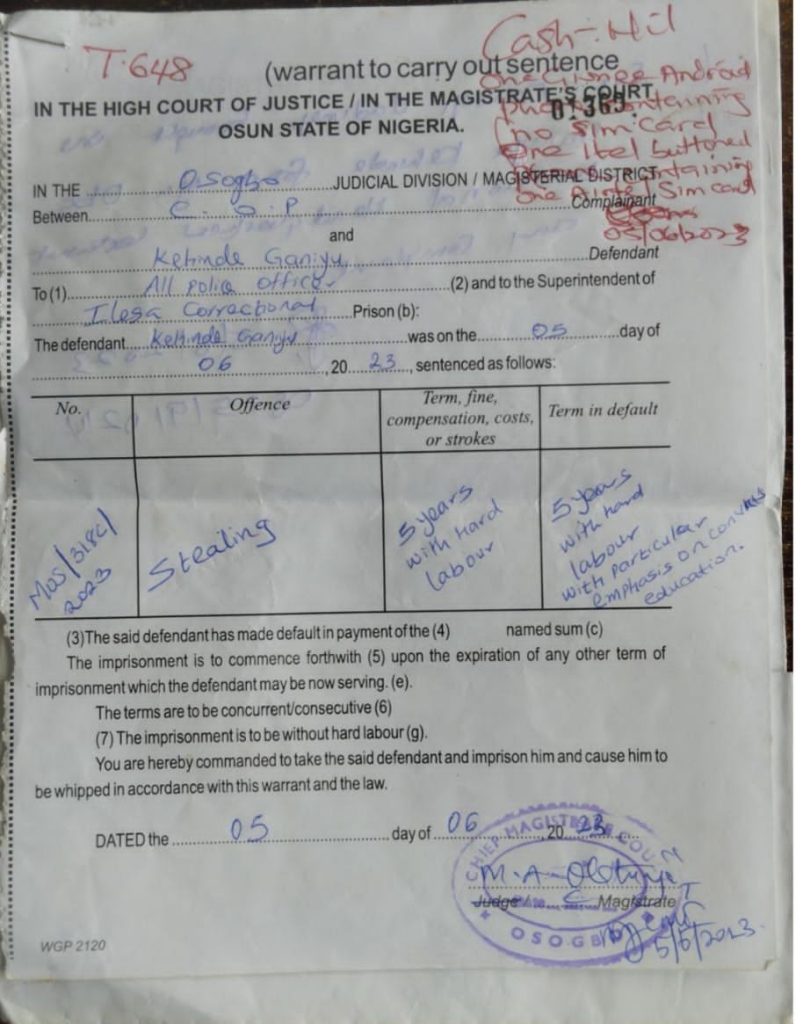 T.648
Cash:- Nil
One Orange Android
phone containing
(no sim card
One Itel buttoned
containing
one Airtel Sim card
05/06/2023
(warrant to carry out sentence
IN THE HIGH COURT OF JUSTICE / IN THE MAGISTRATE'S COURT
01365
OSUN STATE OF NIGERIA.
IN THE Osogbo JUDICIAL DIVISION / MAGISTERIAL DISTRICT
Between C.O.P Complainant
and
Kehinde Ganiyu Defendant
To (1) All police officer (2) and to the Superintendent of
Ilesa Correctional Prison (b):
The defendant Kehinde Ganiyu was on the 05 day of
06, 20 23, sentenced as follows:
No. Offence Term, fine, compensation, costs, or strokes Term in default
MOS/318C/ 2023 Stealing 5 years with Hard labour 5 years with hard labour with particular emphasis on convicts education.
(3)The said defendant has made default in payment of the (4) named sum (c)
The imprisonment is to commence forthwith (5) upon the expiration of any other term of
imprisonment which the defendant may be now serving. (e).
The terms are to be concurrent/consecutive (6)
(7) The imprisonment is to be without hard labour (g).
You are hereby commanded to take the said defendant and imprison him and cause him to
be whipped in accordance with this warrant and the law.
DATED the 05 day of 06, 20 23
CHIEF MAGISTRATE COURT
M.A.
Judge Magistrate
OSOGBO
5/6/2023
WGP 2120